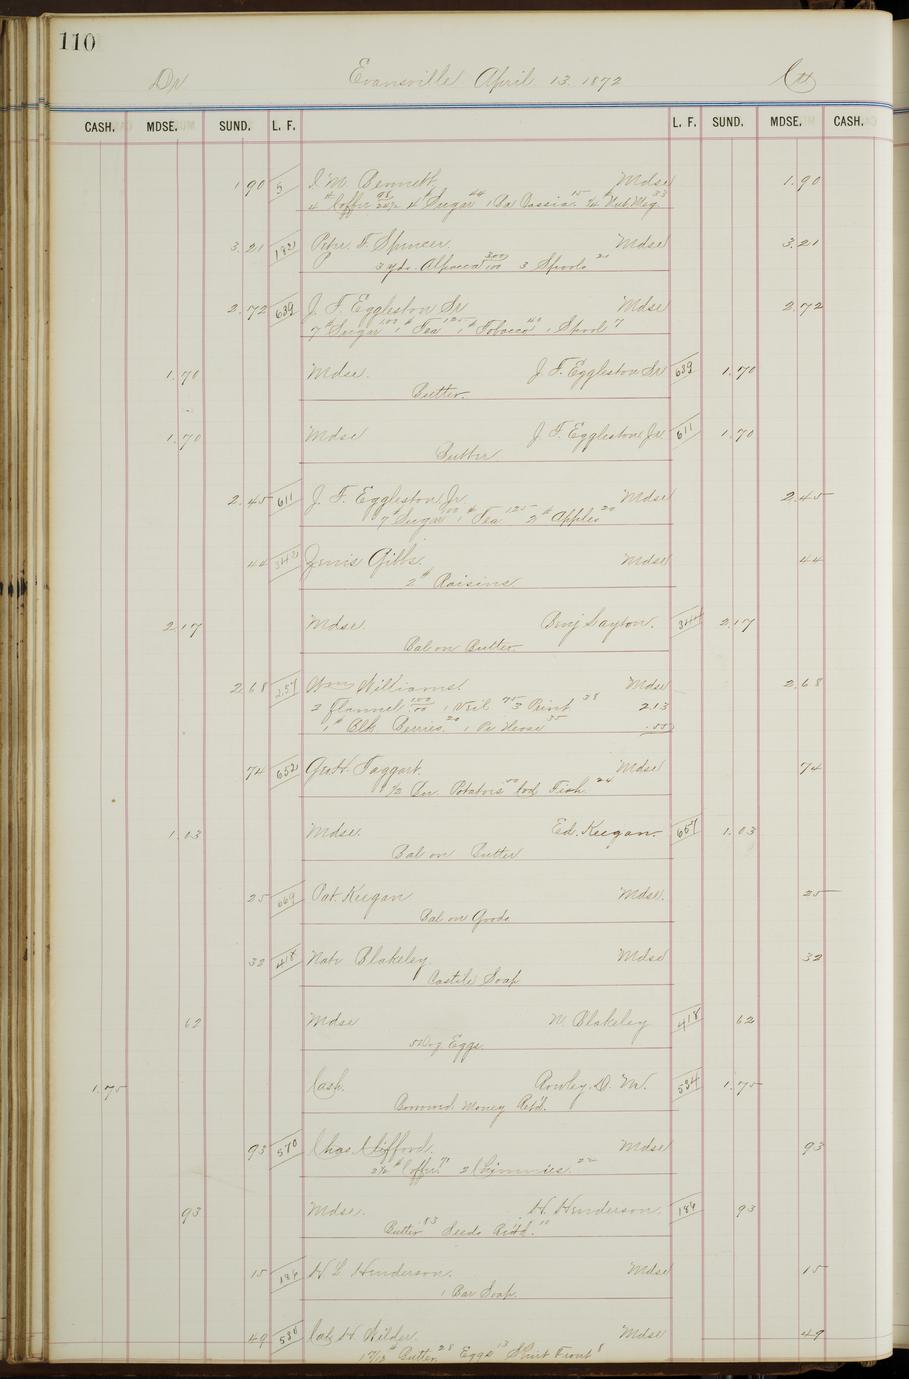 110
Dr Evansville April 13. 1872 Cr
CASH. MDSE. SUND. L. F. L. F. SUND. MDSE. CASH.
1 90 5 M. Bennett Mdse 1.90
4 # Coffee 4 # Sugar 44 1 Pa Cassia 15 1/4 Nutmeg 33
3.21 182 Peter F. Spencer Mdse 3.21
3 yds. Alpacca 300/100 3 Spools 21
2.72 639 J. F. Eggleston Sr Mdse 2.72
7 # Sugar 100 1 # Tea 125 1 # Tobacco 40 1 Spool 7
1.70 Mdse. J. F. Eggleston Sr 639 1.70
Butter.
1.70 Mdse J. F. Eggleston Jr. 611 1.70
Butter
2.45 611 J. F. Eggleston Jr. Mdse 2.45
7 # Sugar 100 1 # Tea 125 2 # Apples 20
44 343 Gibbs. Mdse 44
2 # Raisins
2.17 Mdse. Benj Layton. 344 2.17
Bal on Butter
2.68 257 Wm Williams. Mdse 2.68
2 Flannel 100/00 1 Veil 75 3 Print 38 2.13
1 # Blk Berries. 20 1 Pr Hose 35 .55
74 652 Geo H. Taggart. Mdse 74
1/2 Bu. Potatoes 50 Cod Fish 24
1.03 Mdse. Ed. Keegan. 667 1.03
Bal on Butter
25 669 Pat. Keegan Mdse. 25
Bal on Goods
32 418 Nate Blakeley. Mdse 32
Castile Soap
62 Mdse N. Blakeley 418 62
5 Doz Eggs.
1.75 Cash. Rowley. D. W. 534 1.75
Borrowed Money Retd.
93 570 Chas. Clifford. Mdse 93
2 1/2 # Coffee 71 2 Chimnies 22
93 Mdse. H. Henderson. 186 93
Butter 83 Seeds Retd. 11
15 186 H. L. Henderson. Mdse 15
1 Bar Soap.
49 530 H Wilder. Mdse 49
# Butter 28 Eggs 13 Shirt Front 8